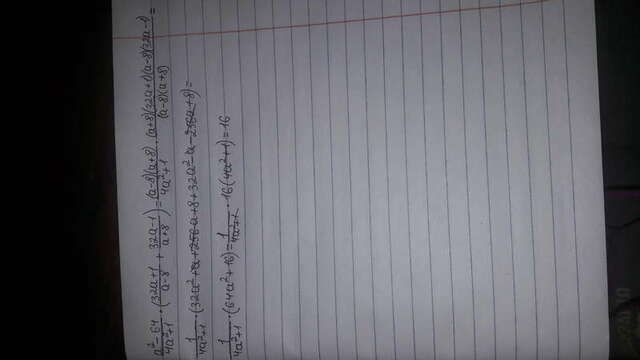 (a²-64)/(4a²+1) · ((32a+1)/(a-8) + (32a-1)/(a+8)) = ((a-8)(a+8))/(4a²+1) · ((a+8)(32a+1)(a-8)(32a-1))/((a-8)(a+8)) =
1/(4a²+1) · (32a²+a+256a+8+32a²-a-256a+8) =
1/(4a²+1) · (64a²+16) = 1/(4a²+1) · 16(4a²+1) = 16